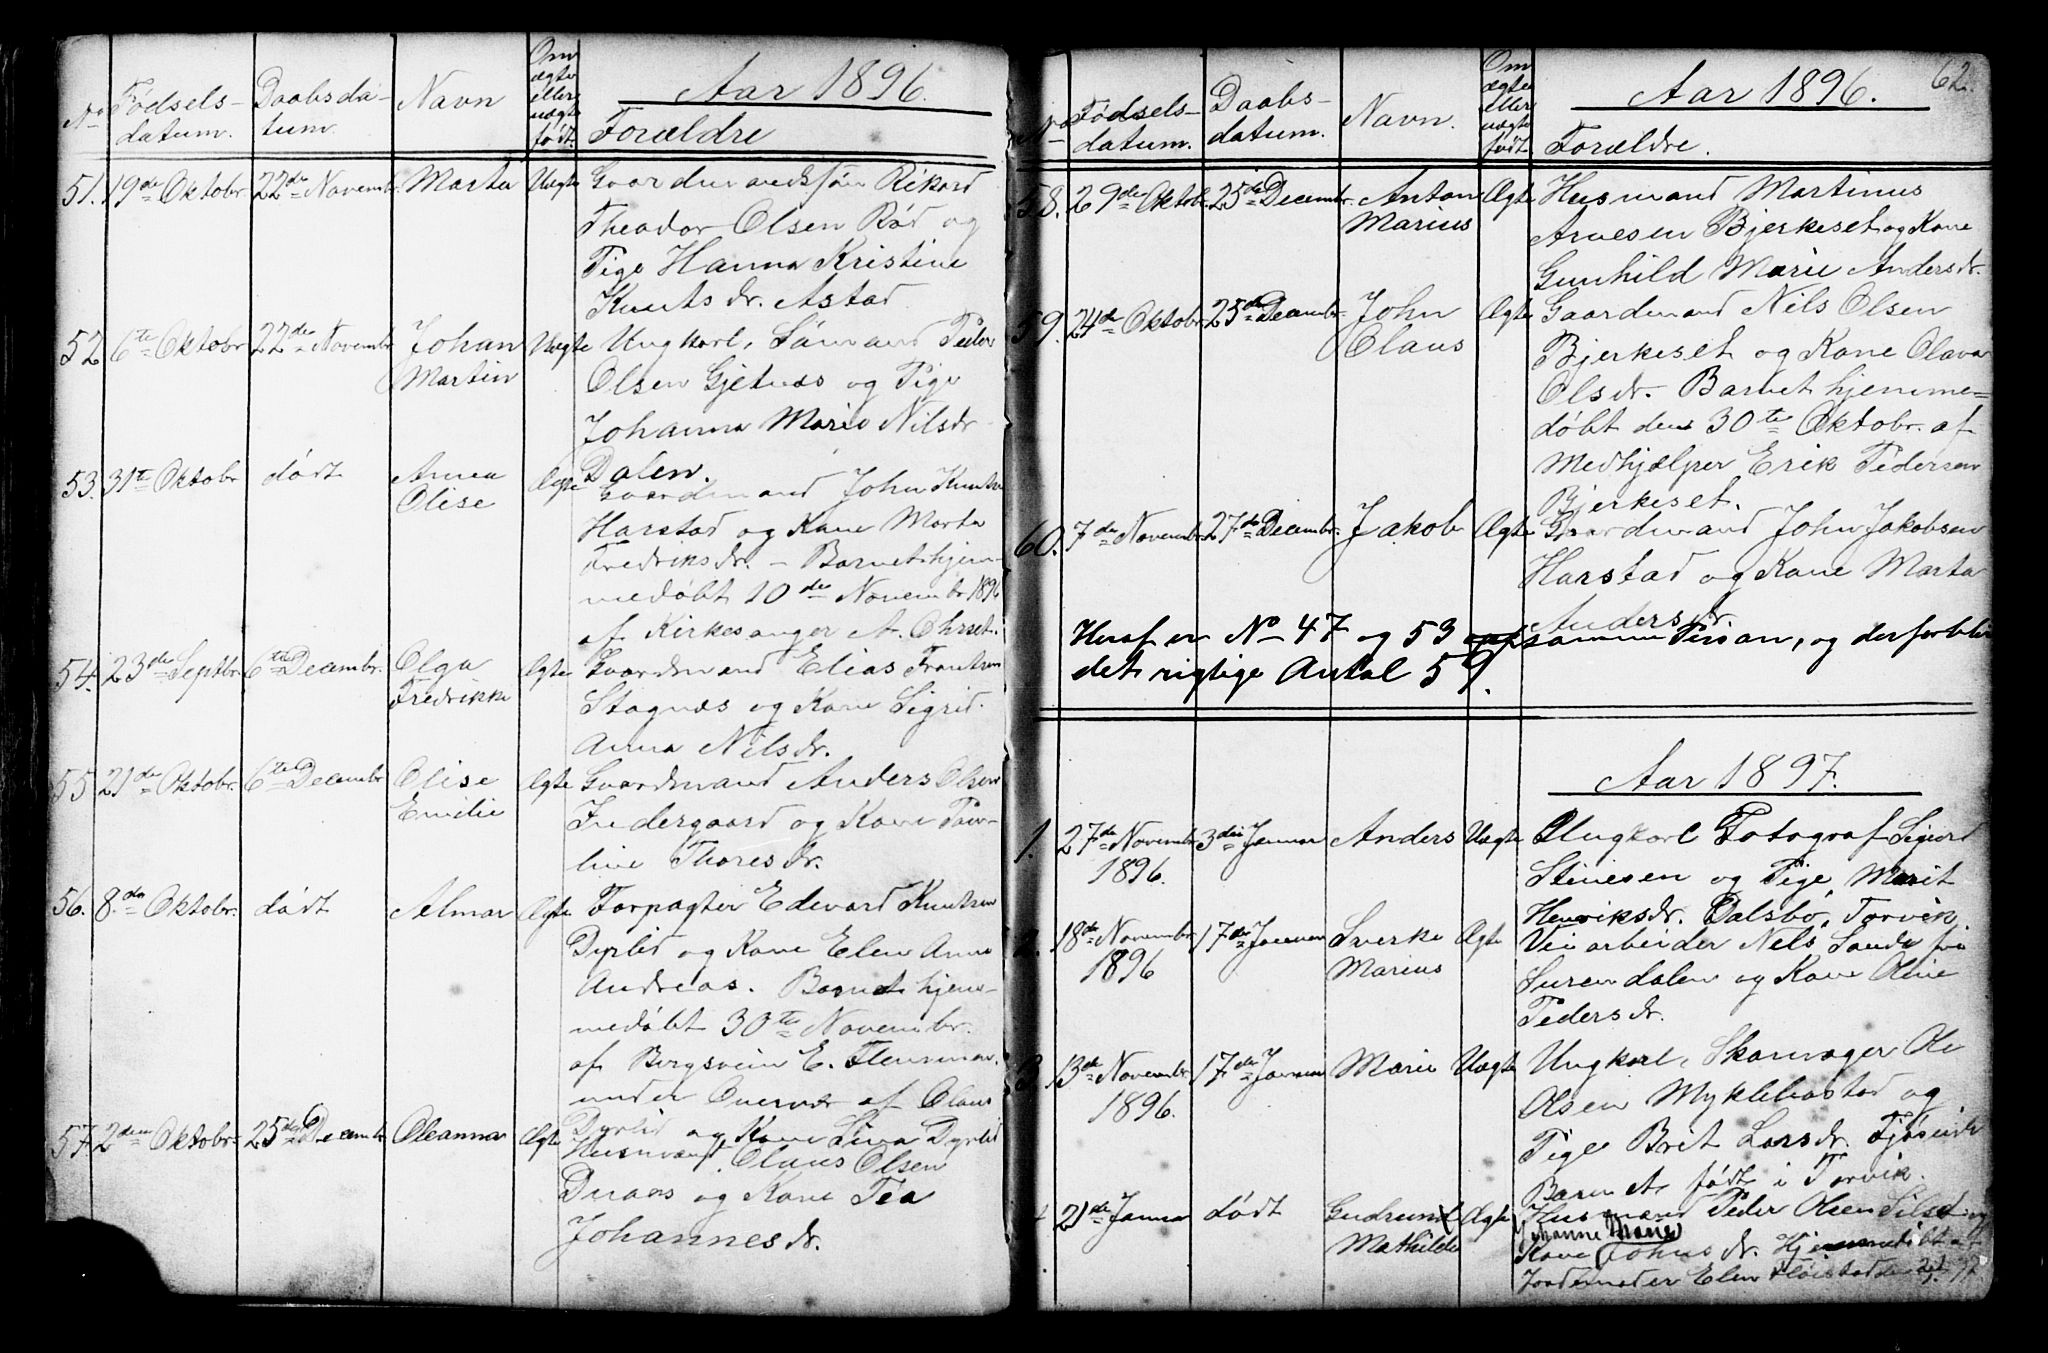 Aar 1896.
No Fødsels-datum. Daabsda-tum. Navn Om ægte eller uægte født. Forældre
51. 19de Oktobr 22de Novembr. Marta Uægte Gaardmandssøn Rikard
Theodor Olsen Rød og
Pige Hanna Kristine
Knutsdr. Astad
52 6te Oktobr 22de Novembr Johan Martin Uægte Ungkarl, Sømand Peder
Olsen Gjetnæs og Pige
Johanna Marie Nilsdr
Dalen.
53. 31te Oktobr dødt Anna Olise Ægte Gaardmand John Knutsen
Harstad og Kone Marta
Fredriksdr. - Barnet hjem-
medøbt 10de Novembr 1896
af Kirkesanger A. Ohrset.
54. 23de Septbr. 6te Decembr. Olga Fredrikke Ægte Gaardmand Elias Frantsen
Stagnæs og Kone Sigrid
Anna Nilsdr.
55 21de Oktobr. 6te Decembr Olise Emilie Ægte Gaardmand Anders Olsen
Indergaard og Kone Pau-
line Thoresdr.
56. 8.de Oktobr. dødt Almar Ægte Forpagter Edvard Knutsen
Dyrlid og Kone Elen Anne
Andreas. Barnet hjem-
medøbt 30te Novembr.
af Bergsvein E.
under Overvær af Claus
Dyrlid og Kone Lina Dyrlid
57. 2den Oktobr. 25de Decembr Oleanna Ægte Husmand Claus Olsen
og Kone Tea
Johannesdr.
62.
Aar 1896.
No Fødsels-datum. Daabs-datum. Navn. Om ægte eller uægte født. Forældre.
58. 29de Oktobr. 25de Decembr. Anton Marius Ægte Husmand Martinus
Arnesen Bjerkeset og Kone
Gunhild Marie Andersdr.
59. 24de Oktobr 25de Decembr. John Claus Ægte Gaardmand Nils Olsen
Bjerkeset og Kone Olava
Olsdr. Barnet hjemme-
døbt den 30te Oktobr. af
Medhjælper Erik Pedersen
Bjerkeset.
60. 7de Novembr. 27de Decembr. Jakob Ægte Gaardmand John Jakobsen
Harstad og Kone Marta
Andersdr.
Heraf er No 47 og 53 samme Person, og derfor blir
det rigtige Antal 59.
Aar 1897.
1. 27de Novembr 1896. 3die Januar Anders Uægte Ungkarl Fotograf Sigurd
Stinesen og Pige Marit
Henriksdr. Dalsbø, Torvik
2. 18de Novembr. 1896 17de Januar Sverke Marius Ægte Veiarbeider Nels Sande fra
Surendalen og Kone Oline
Pedersdr.
3. 13de Novembr 1896. 17de Januar Marie Uægte Ungkarl, Skomager Ole
Olsen Myklebostad og
Pige Brit Larsdr.
Barnet født i Torvik.
4. 21de Januar dødt Gudrund Mathilde Ægte Husmand Peder Olsen Silset og
Johanne Marie
Kone Johnsdr. Hjemmedøbt af
Jordemoder Elen